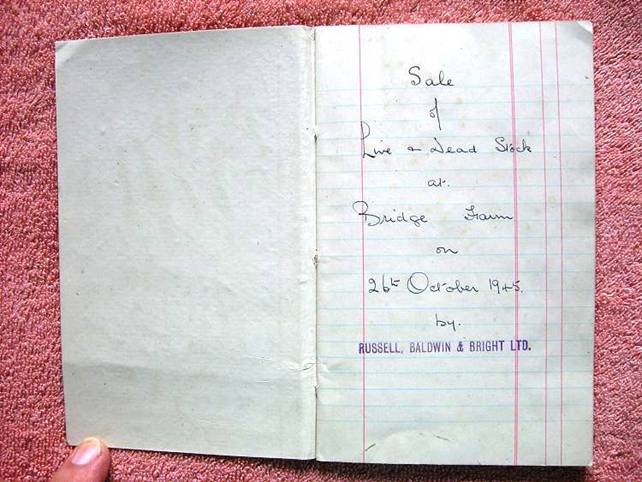 Sale
of
Live & Dead Stock
at.
Bridge Farm
on
26th October 1945.
by.
RUSSELL, BALDWIN & BRIGHT LTD.